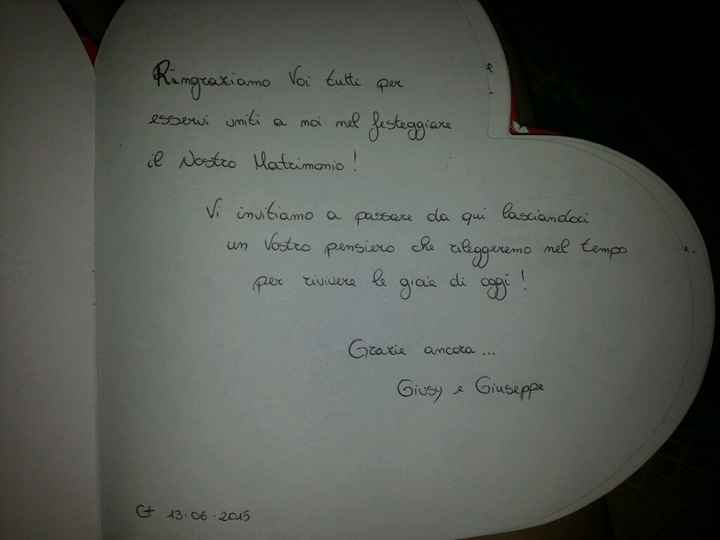 Ringraziamo Voi tutti per
esservi uniti a noi nel festeggiare
il Nostro Matrimonio!
Vi invitiamo a passare da qui lasciandoci
un Vostro pensiero che rileggeremo nel tempo
per rivivere le gioie di oggi!
Grazie ancora...
Giusy e Giuseppe
Ct 13.06.2015